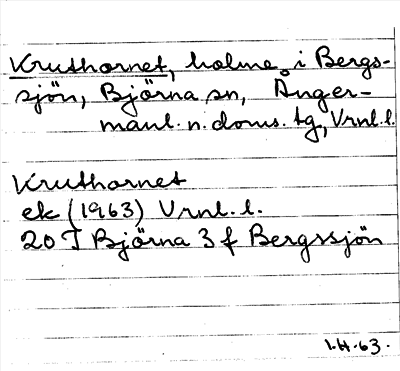 Kruthornet, holme i Bergs-
sjön, Björna sn, Ånger-
manl. n. doms. tg, Vrnl. l.
Kruthornet
ek (1963) Vrnl. l.
20 I Björna 3 f Bergssjön
I.H. 63.